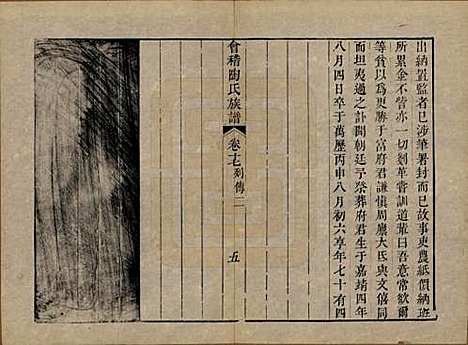 出納置監者已涉筆署封而已故事吏農紙價納班
所累金不啻亦一切剗革嘗訓道輩曰吾意常欲爾
等貧以為更勝于富府君謙慎周慮大氐與文僖同
而坦夷過之計聞朝廷予祭葬府君生于嘉靖四年
八月四日卒于萬歷丙申八月初六享年七十有四
會稽陶氏族譜
卷十七列傳二
五